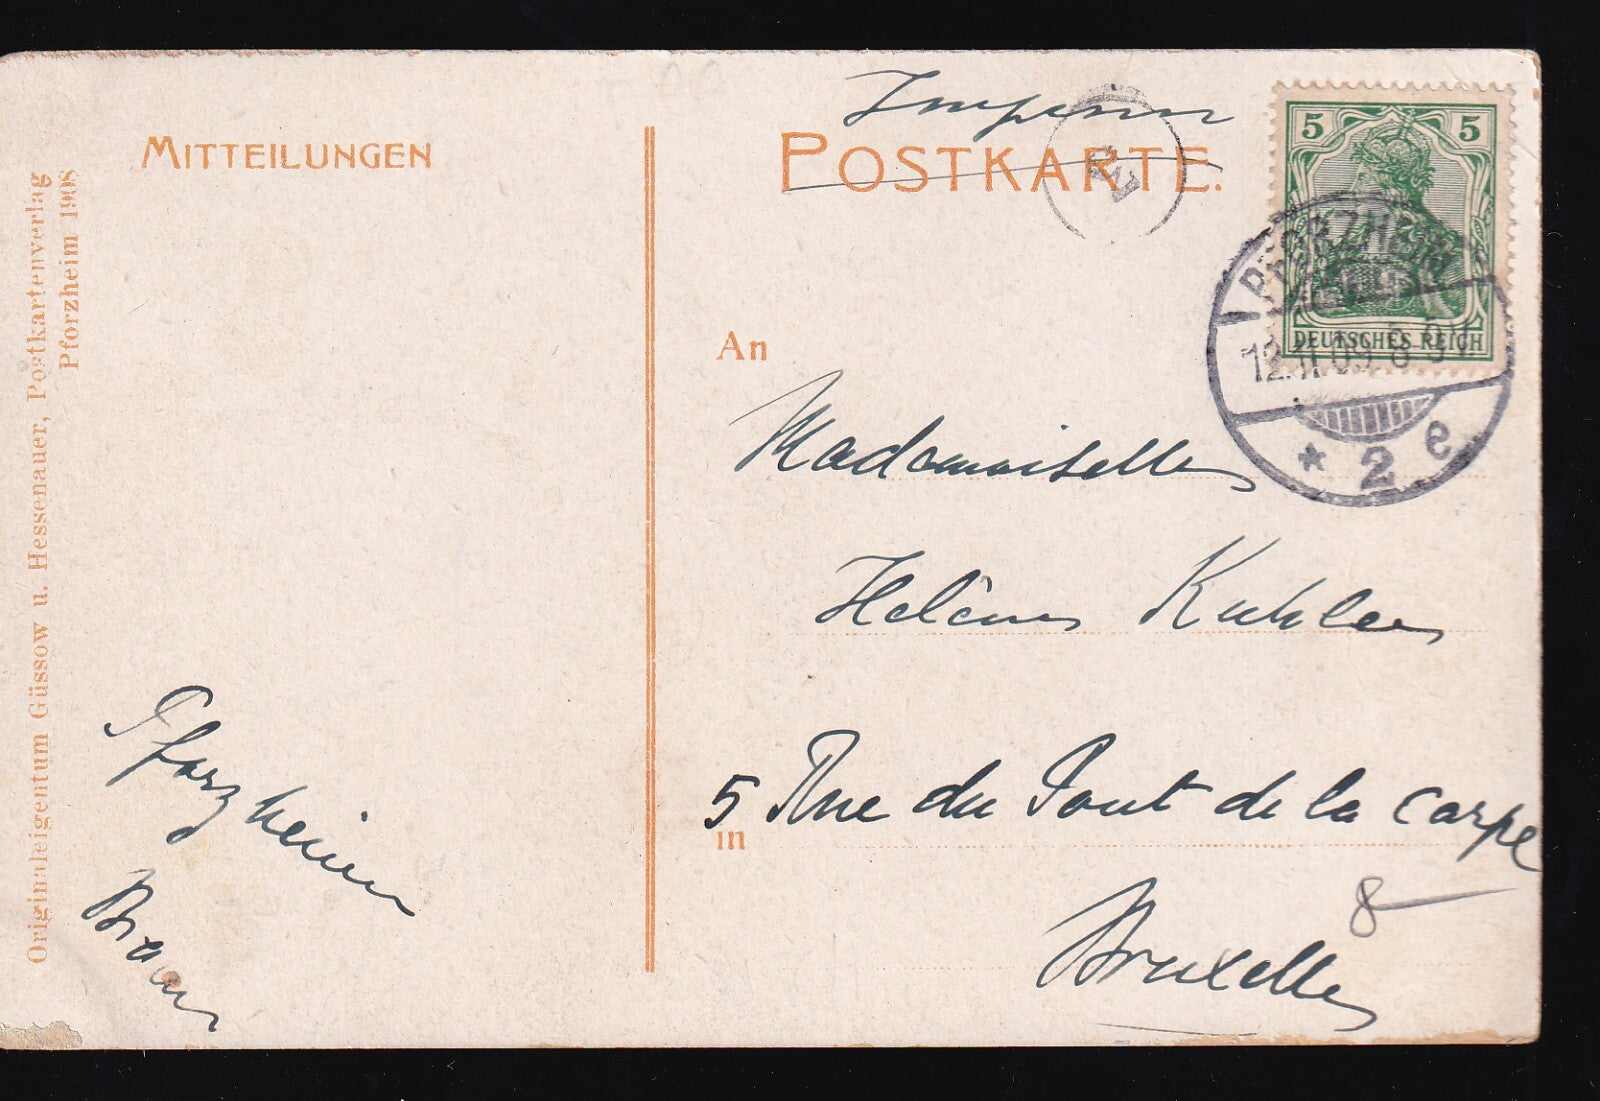 MITTEILUNGEN
Originaleigentum Güssow u. Hessenauer, Postkartenverlag
Pforzheim 1908
Pforzheim
POSTKARTE.
5 5
DEUTSCHES REICH
PFORZHEIM
12.11.09.8-9V
* 2 e
An
Mademoiselle
Helène Kuhlen
5 Rue du Pont de la Carpe
in
Bruxelles
8